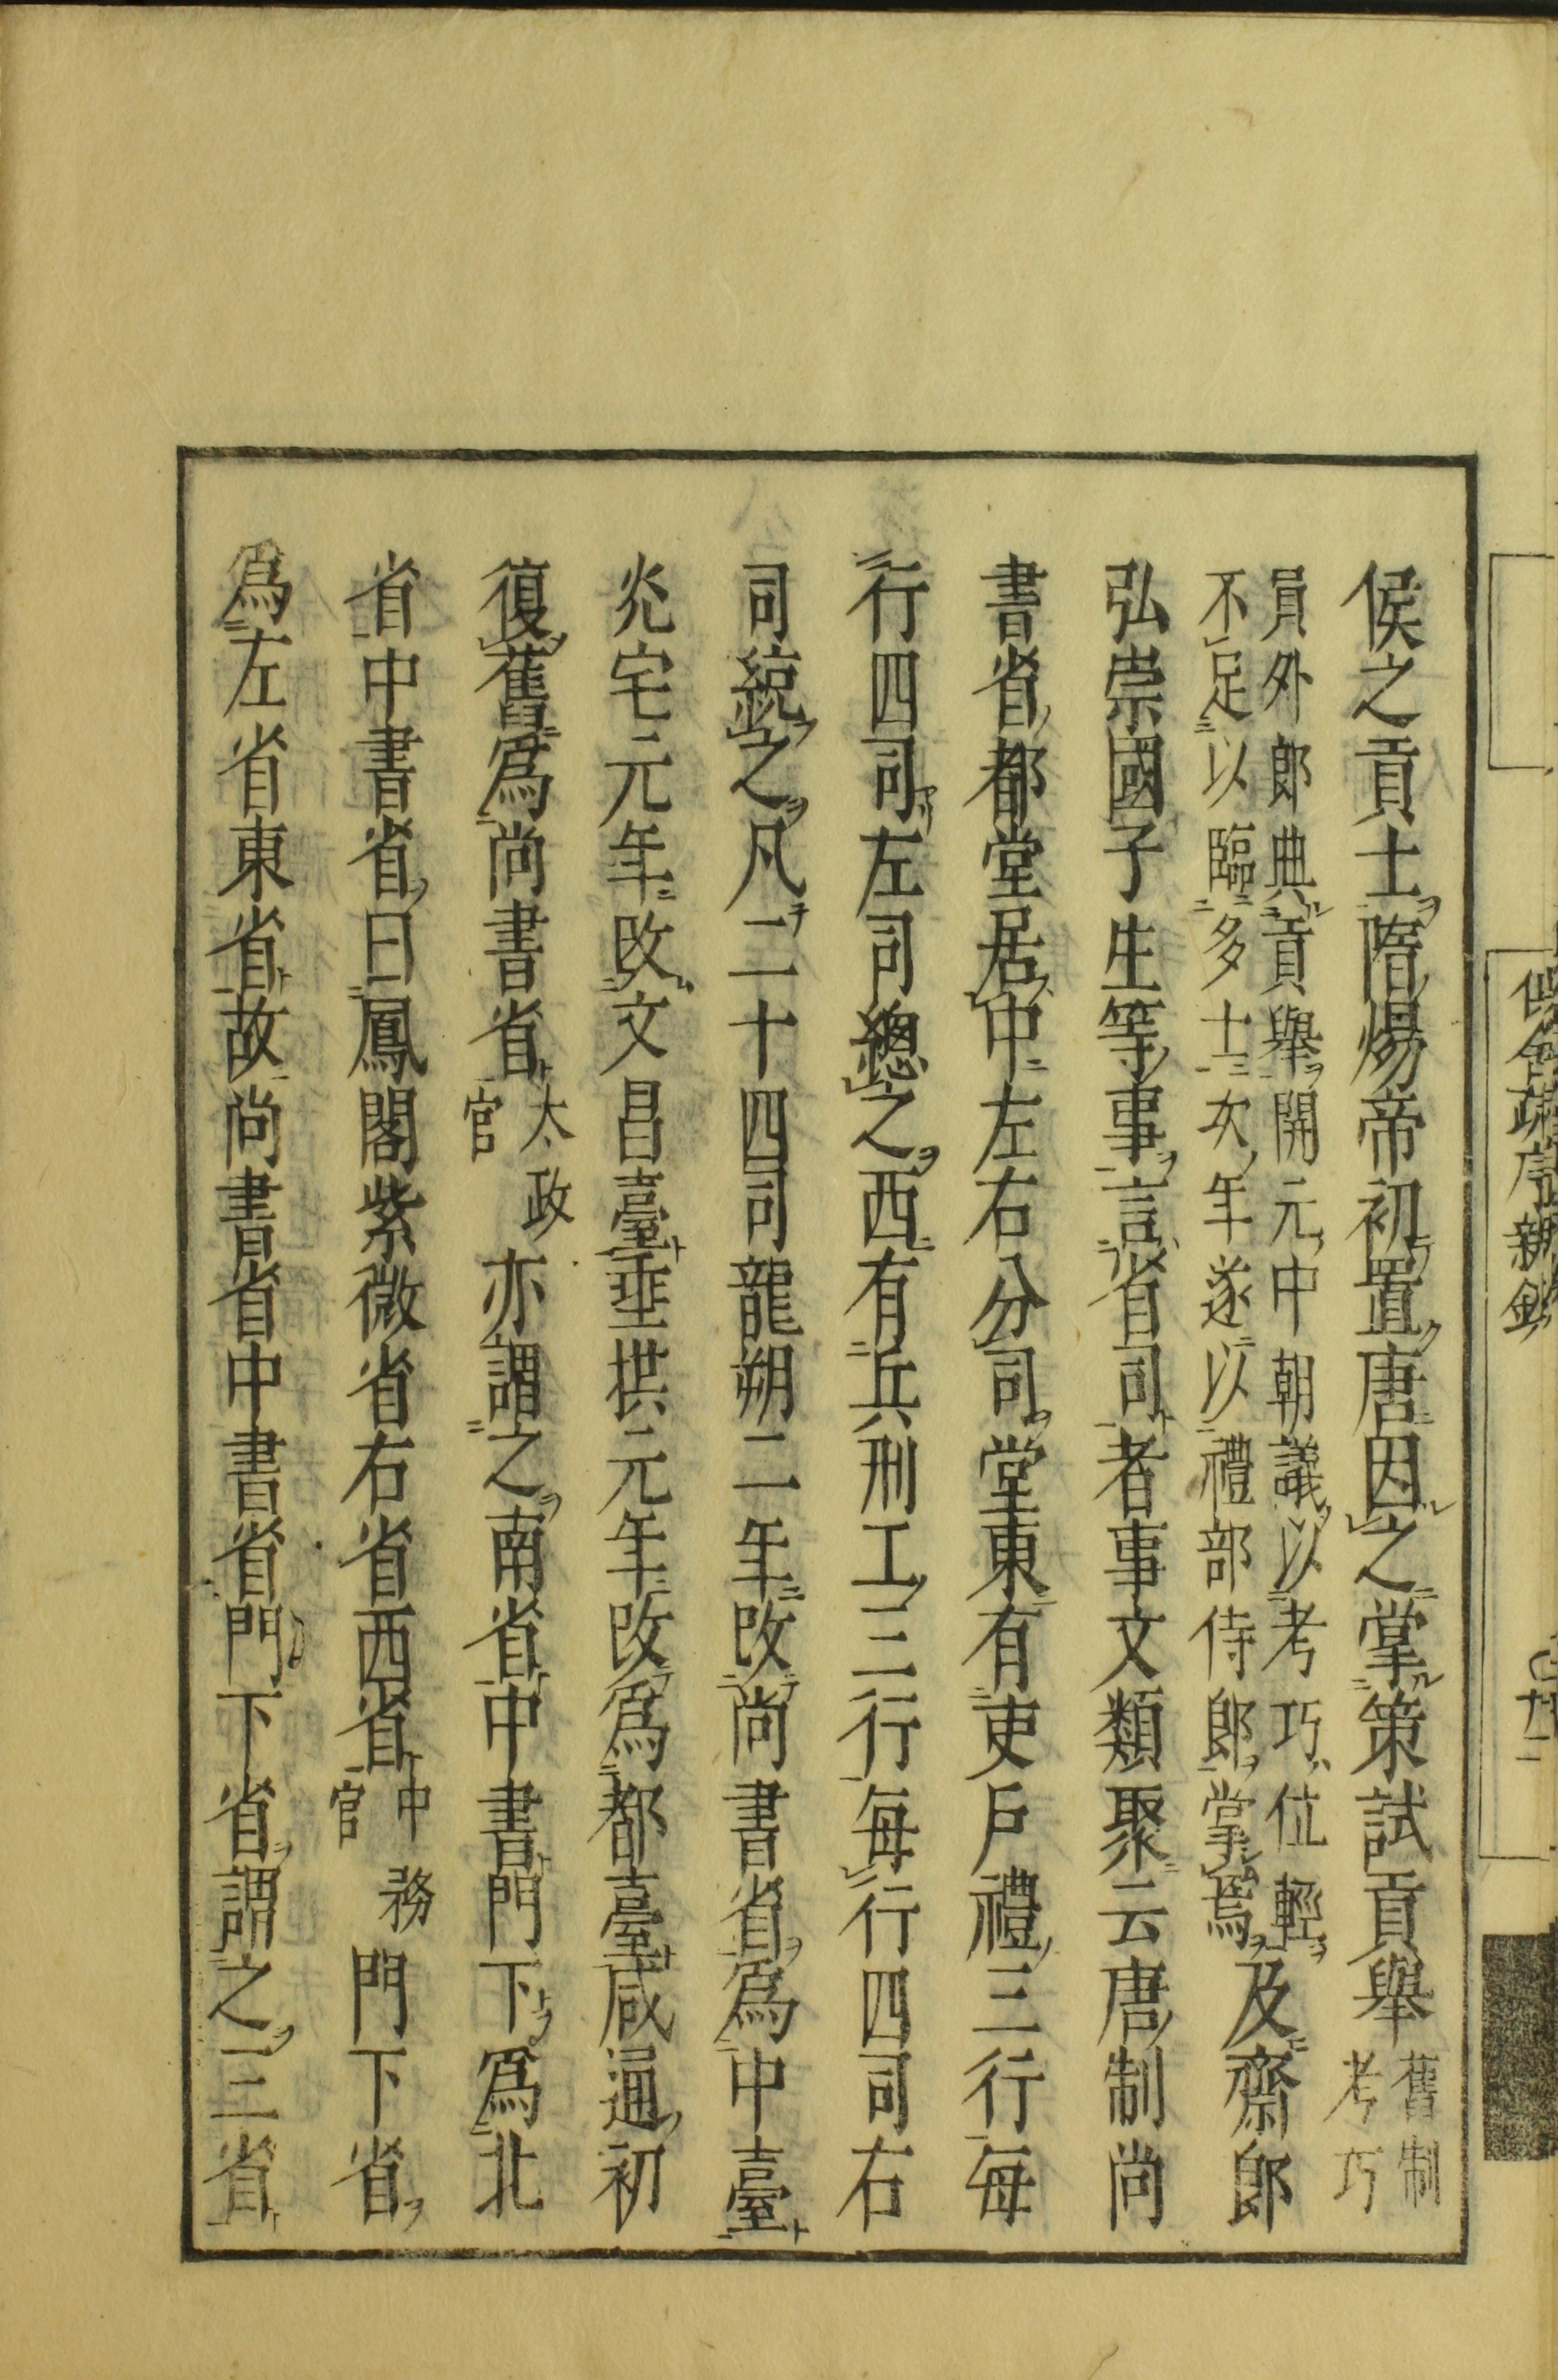 侯之貢士隋煬帝初置唐因之掌策試貢舉舊制考巧
員外郎典貢舉開元中朝議以考巧位輕
不足以臨多士次年遂以禮部侍郎掌焉及齋郎
弘崇國子生等事言省司者事文類聚云唐制尚
書省都堂居中左右分司堂東有吏戶禮三行每
行四司左司總之西有兵刑工三行每行四司右
司統之凡二十四司龍朔二年改尚書省爲中臺
光宅元年改文昌臺垂拱元年改爲都臺咸通初
復舊爲尚書省太政官亦謂之南省中書門下爲北
省中書省曰鳳閣紫微省右省西省中務官門下省
爲左省東省故尚書省中書省門下省謂之三省